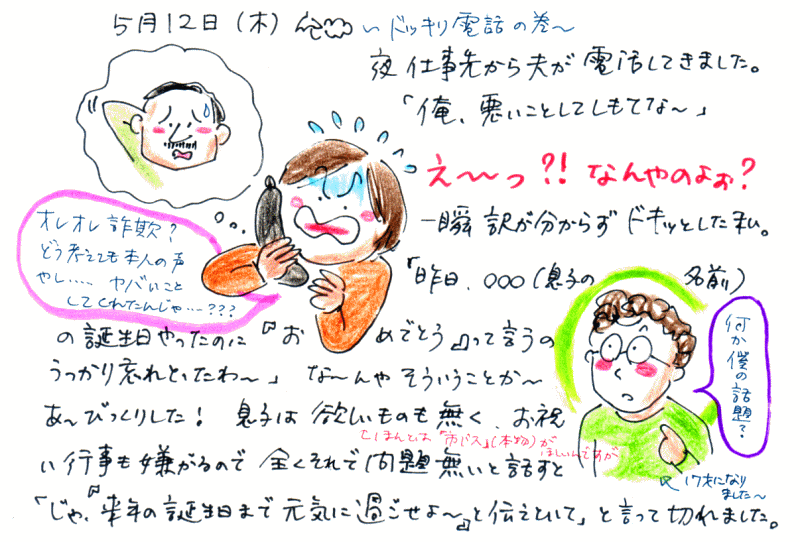 5月12日（木） いドッキリ電話の巻～
夜 仕事先から夫が電話してきました。
「俺、悪いことしてしもてな～」
え～～っ?! なんやのよぉ?
一瞬 訳が分からず ドキッとした私。
オレオレ詐欺?
どう考えても本人の声
やし…… ヤバいこと
してくれたんじゃ…???
「昨日、○○○(息子の 名前)
の誕生日やったのに『おめでとう』って言うの
うっかり忘れとったわ～」 な～んや そういうことか～
あ～びっくりした! 息子は 欲しいものも無く、お祝
(ほんとは「市バス」(本物)が
ほしいんですが
い行事も嫌がるので 全くそれで問題無いと話すと
「じゃ、『来年の誕生日まで 元気に過ごせよ～』と伝えといて」と言って切れました。
何か僕の話題?
17才になり
ました～